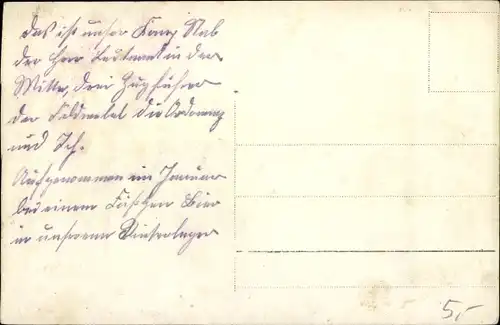 Das ist unser Komp Stab
der Herr Leutnant in der
Mitte, drei Zugführer
der Feldwebel die Ordonnanz
und Ich.
Aufgenommen im Januar
bei einem Fäßchen Bier
in unserem Winterlager
5,-